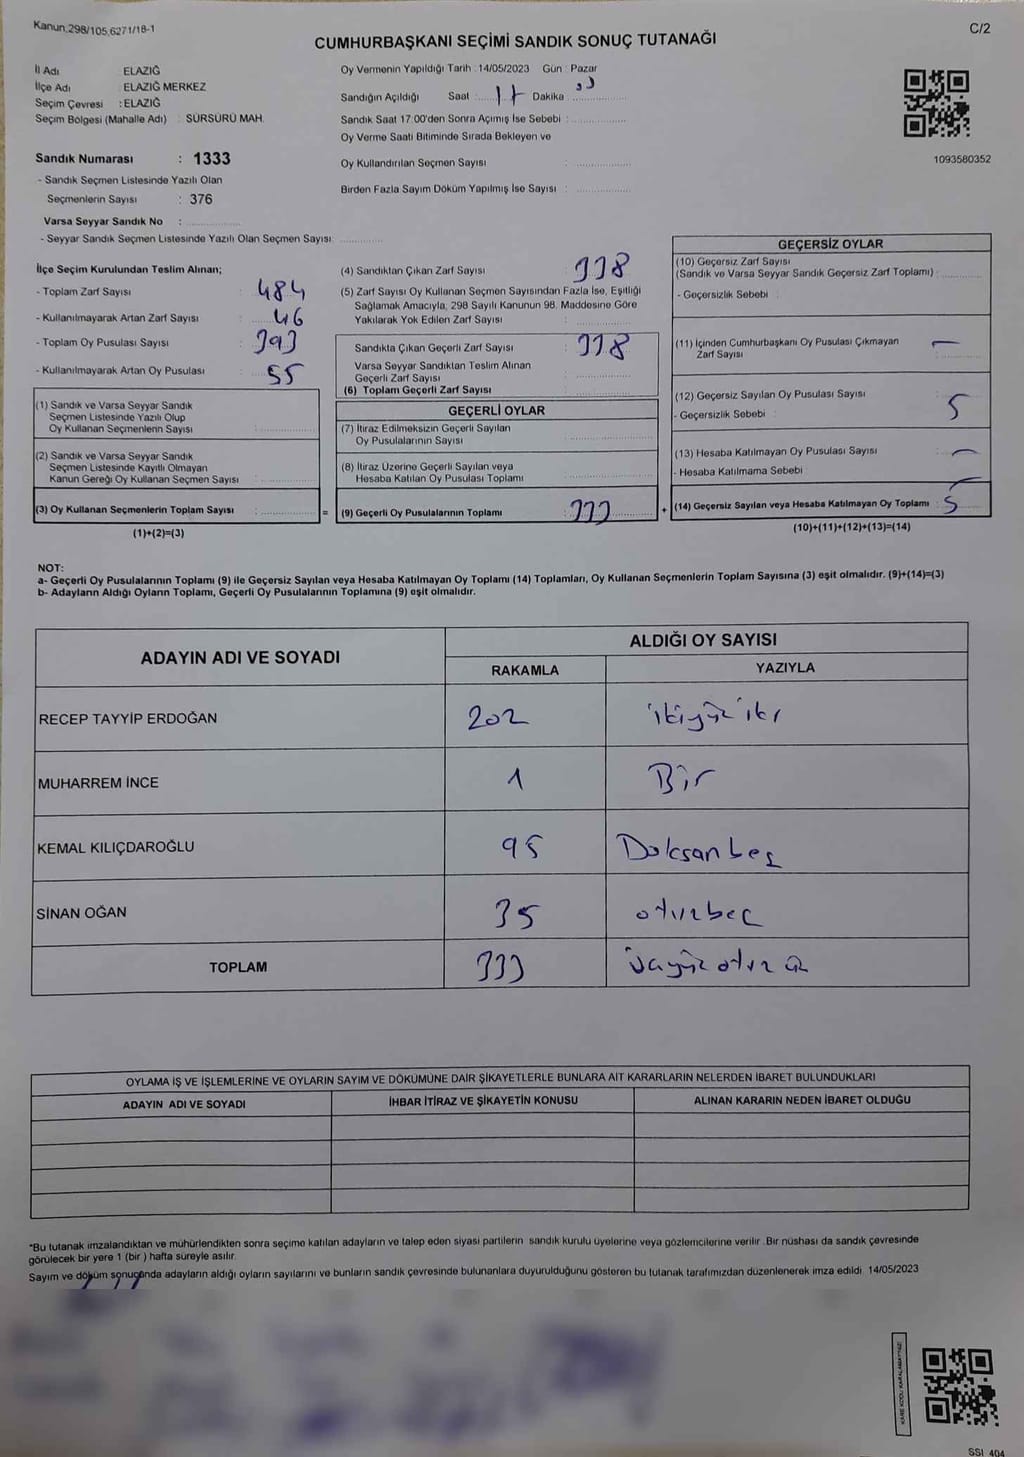 Kanun.298/105,6271/18-1
C/2
CUMHURBAŞKANI SEÇİMİ SANDIK SONUÇ TUTANAĞI
İl Adı : ELAZIĞ
İlçe Adı : ELAZIĞ MERKEZ
Seçim Çevresi : ELAZIĞ
Seçim Bölgesi (Mahalle Adı) SÜRSÜRÜ MAH.
Oy Vermenin Yapıldığı Tarih : 14/05/2023 Gün : Pazar
Sandığın Açıldığı Saat : 17 Dakika :
Sandık Saat 17:00'den Sonra Açımış İse Sebebi :
Oy Verme Saati Bitiminde Sırada Bekleyen ve
Oy Kullandırılan Seçmen Sayısı :
Birden Fazla Sayım Döküm Yapılmış İse Sayısı :
1093580352
Sandık Numarası : 1333
- Sandık Seçmen Listesinde Yazılı Olan
Seçmenlerin Sayısı : 376
Varsa Seyyar Sandık No :
- Seyyar Sandık Seçmen Listesinde Yazılı Olan Seçmen Sayısı:
İlçe Seçim Kurulundan Teslim Alınan;
- Toplam Zarf Sayısı : 484
- Kullanılmayarak Artan Zarf Sayısı : 46
- Toplam Oy Pusulası Sayısı : 393
- Kullanılmayarak Artan Oy Pusulası : 55
(1) Sandık ve Varsa Seyyar Sandık
Seçmen Listesinde Yazılı Olup
Oy Kullanan Seçmenlerin Sayısı :
(2) Sandık ve Varsa Seyyar Sandık
Seçmen Listesinde Kayıtlı Olmayan
Kanun Gereği Oy Kullanan Seçmen Sayısı :
(3) Oy Kullanan Seçmenlerin Toplam Sayısı : =
(1)+(2)=(3)
(4) Sandıktan Çıkan Zarf Sayısı : 338
(5) Zarf Sayısı Oy Kullanan Seçmen Sayısından Fazla İse, Eşitliği
Sağlamak Amacıyla, 298 Sayılı Kanunun 98. Maddesine Göre
Yakılarak Yok Edilen Zarf Sayısı :
Sandıkta Çıkan Geçerli Zarf Sayısı : 338
Varsa Seyyar Sandıktan Teslim Alınan
Geçerli Zarf Sayısı :
(6) Toplam Geçerli Zarf Sayısı :
GEÇERLİ OYLAR
(7) İtiraz Edilmeksizin Geçerli Sayılan
Oy Pusulalarının Sayısı :
(8) İtiraz Üzerine Geçerli Sayılan veya
Hesaba Katılan Oy Pusulası Toplamı :
(9) Geçerli Oy Pusulalarının Toplamı : 333 +
GEÇERSİZ OYLAR
(10) Geçersiz Zarf Sayısı
(Sandık ve Varsa Seyyar Sandık Geçersiz Zarf Toplamı) :
- Geçersizlik Sebebi :
(11) İçinden Cumhurbaşkanı Oy Pusulası Çıkmayan : —
Zarf Sayısı
(12) Geçersiz Sayılan Oy Pusulası Sayısı : 5
- Geçersizlik Sebebi :
(13) Hesaba Katılmayan Oy Pusulası Sayısı : —
- Hesaba Katılmama Sebebi : —
(14) Geçersiz Sayılan veya Hesaba Katılmayan Oy Toplamı : 5
(10)+(11)+(12)+(13)=(14)
NOT:
a- Geçerli Oy Pusulalarının Toplamı (9) ile Geçersiz Sayılan veya Hesaba Katılmayan Oy Toplamı (14) Toplamları, Oy Kullanan Seçmenlerin Toplam Sayısına (3) eşit olmalıdır. (9)+(14)=(3)
b- Adayların Aldığı Oyların Toplamı, Geçerli Oy Pusulalarının Toplamına (9) eşit olmalıdır.
ADAYIN ADI VE SOYADI
ALDIĞI OY SAYISI
RAKAMLA YAZIYLA
RECEP TAYYİP ERDOĞAN 202 ikiyüz iki
MUHARREM İNCE 1 Bir
KEMAL KILIÇDAROĞLU 95 Doksanbeş
SİNAN OĞAN 35 otuzbeş
TOPLAM 333 üçyüz otuz üç
OYLAMA İŞ VE İŞLEMLERİNE VE OYLARIN SAYIM VE DÖKÜMÜNE DAİR ŞİKAYETLERLE BUNLARA AİT KARARLARIN NELERDEN İBARET BULUNDUKLARI
ADAYIN ADI VE SOYADI İHBAR İTİRAZ VE ŞİKAYETİN KONUSU ALINAN KARARIN NEDEN İBARET OLDUĞU
*Bu tutanak imzalandıktan ve mühürlendikten sonra seçime katılan adayların ve talep eden siyasi partilerin sandık kurulu üyelerine veya gözlemcilerine verilir. Bir nüshası da sandık çevresinde
görülecek bir yere 1 (bir ) hafta süreyle asılır.
Sayım ve döküm sonuçında adayların aldığı oyların sayılarını ve bunların sandık çevresinde bulunanlara duyurulduğunu gösteren bu tutanak tarafımızdan düzenlenerek imza edildi. 14/05/2023
KARE KODU KARALAMAYINIZ
SSI 404